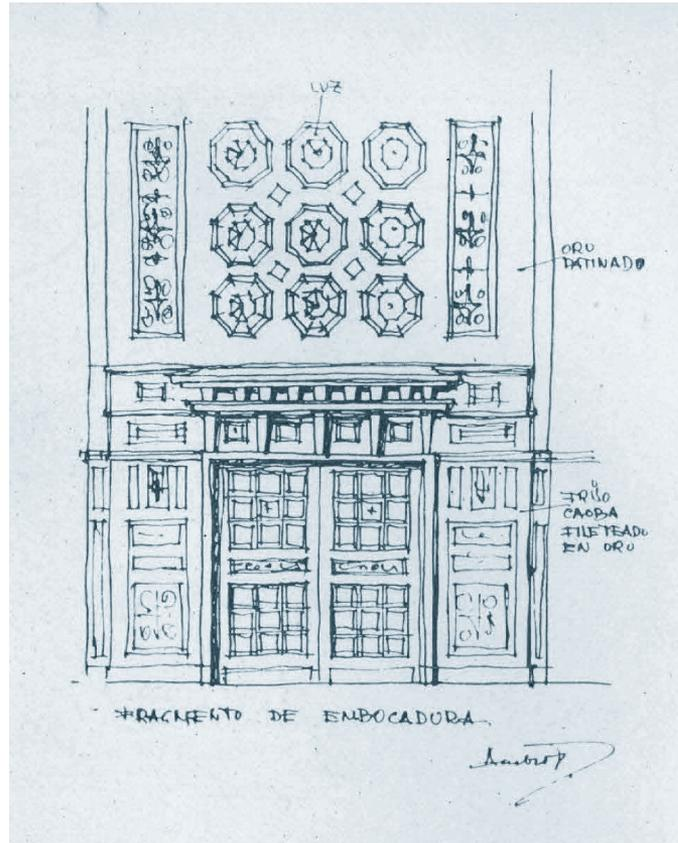 LUZ
ORO
PATINADO
FRISO
CAOBA
FILETEADO
EN ORO
FRAGMENTO DE EMBOCADURA